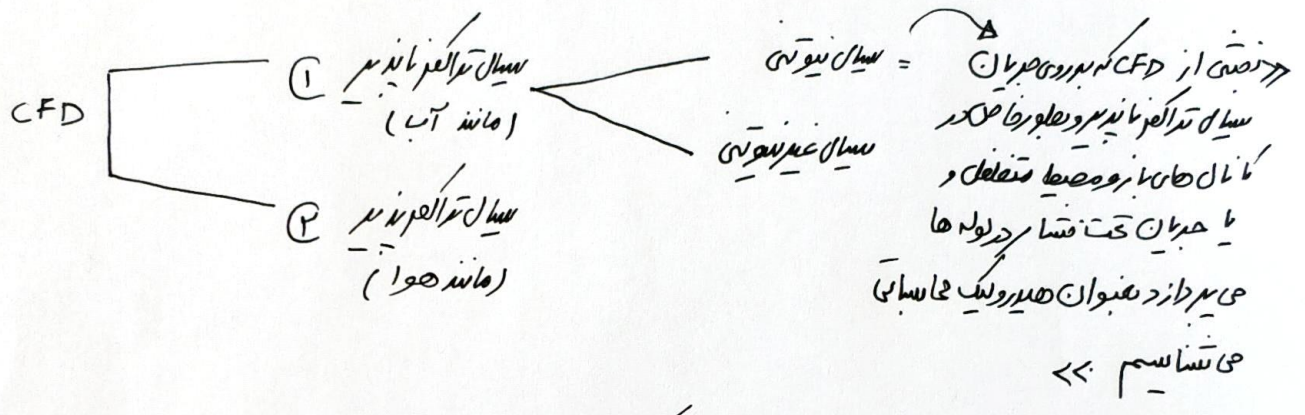 CFD
① سیال تراکم ناپذیر
(مانند آب)
② سیال تراکم پذیر
(مانند هوا)
سیال نیوتنی =
سیال غیر نیوتنی
>> بخشی از CFD که بر روی جریان
سیال تراکم ناپذیر و بطور خاص در
کانال های باز و محیط متخلخل و
یا جریان تحت فشار در لوله ها
می پردازد بعنوان هیدرولیک محاسباتی
می شناسیم >>